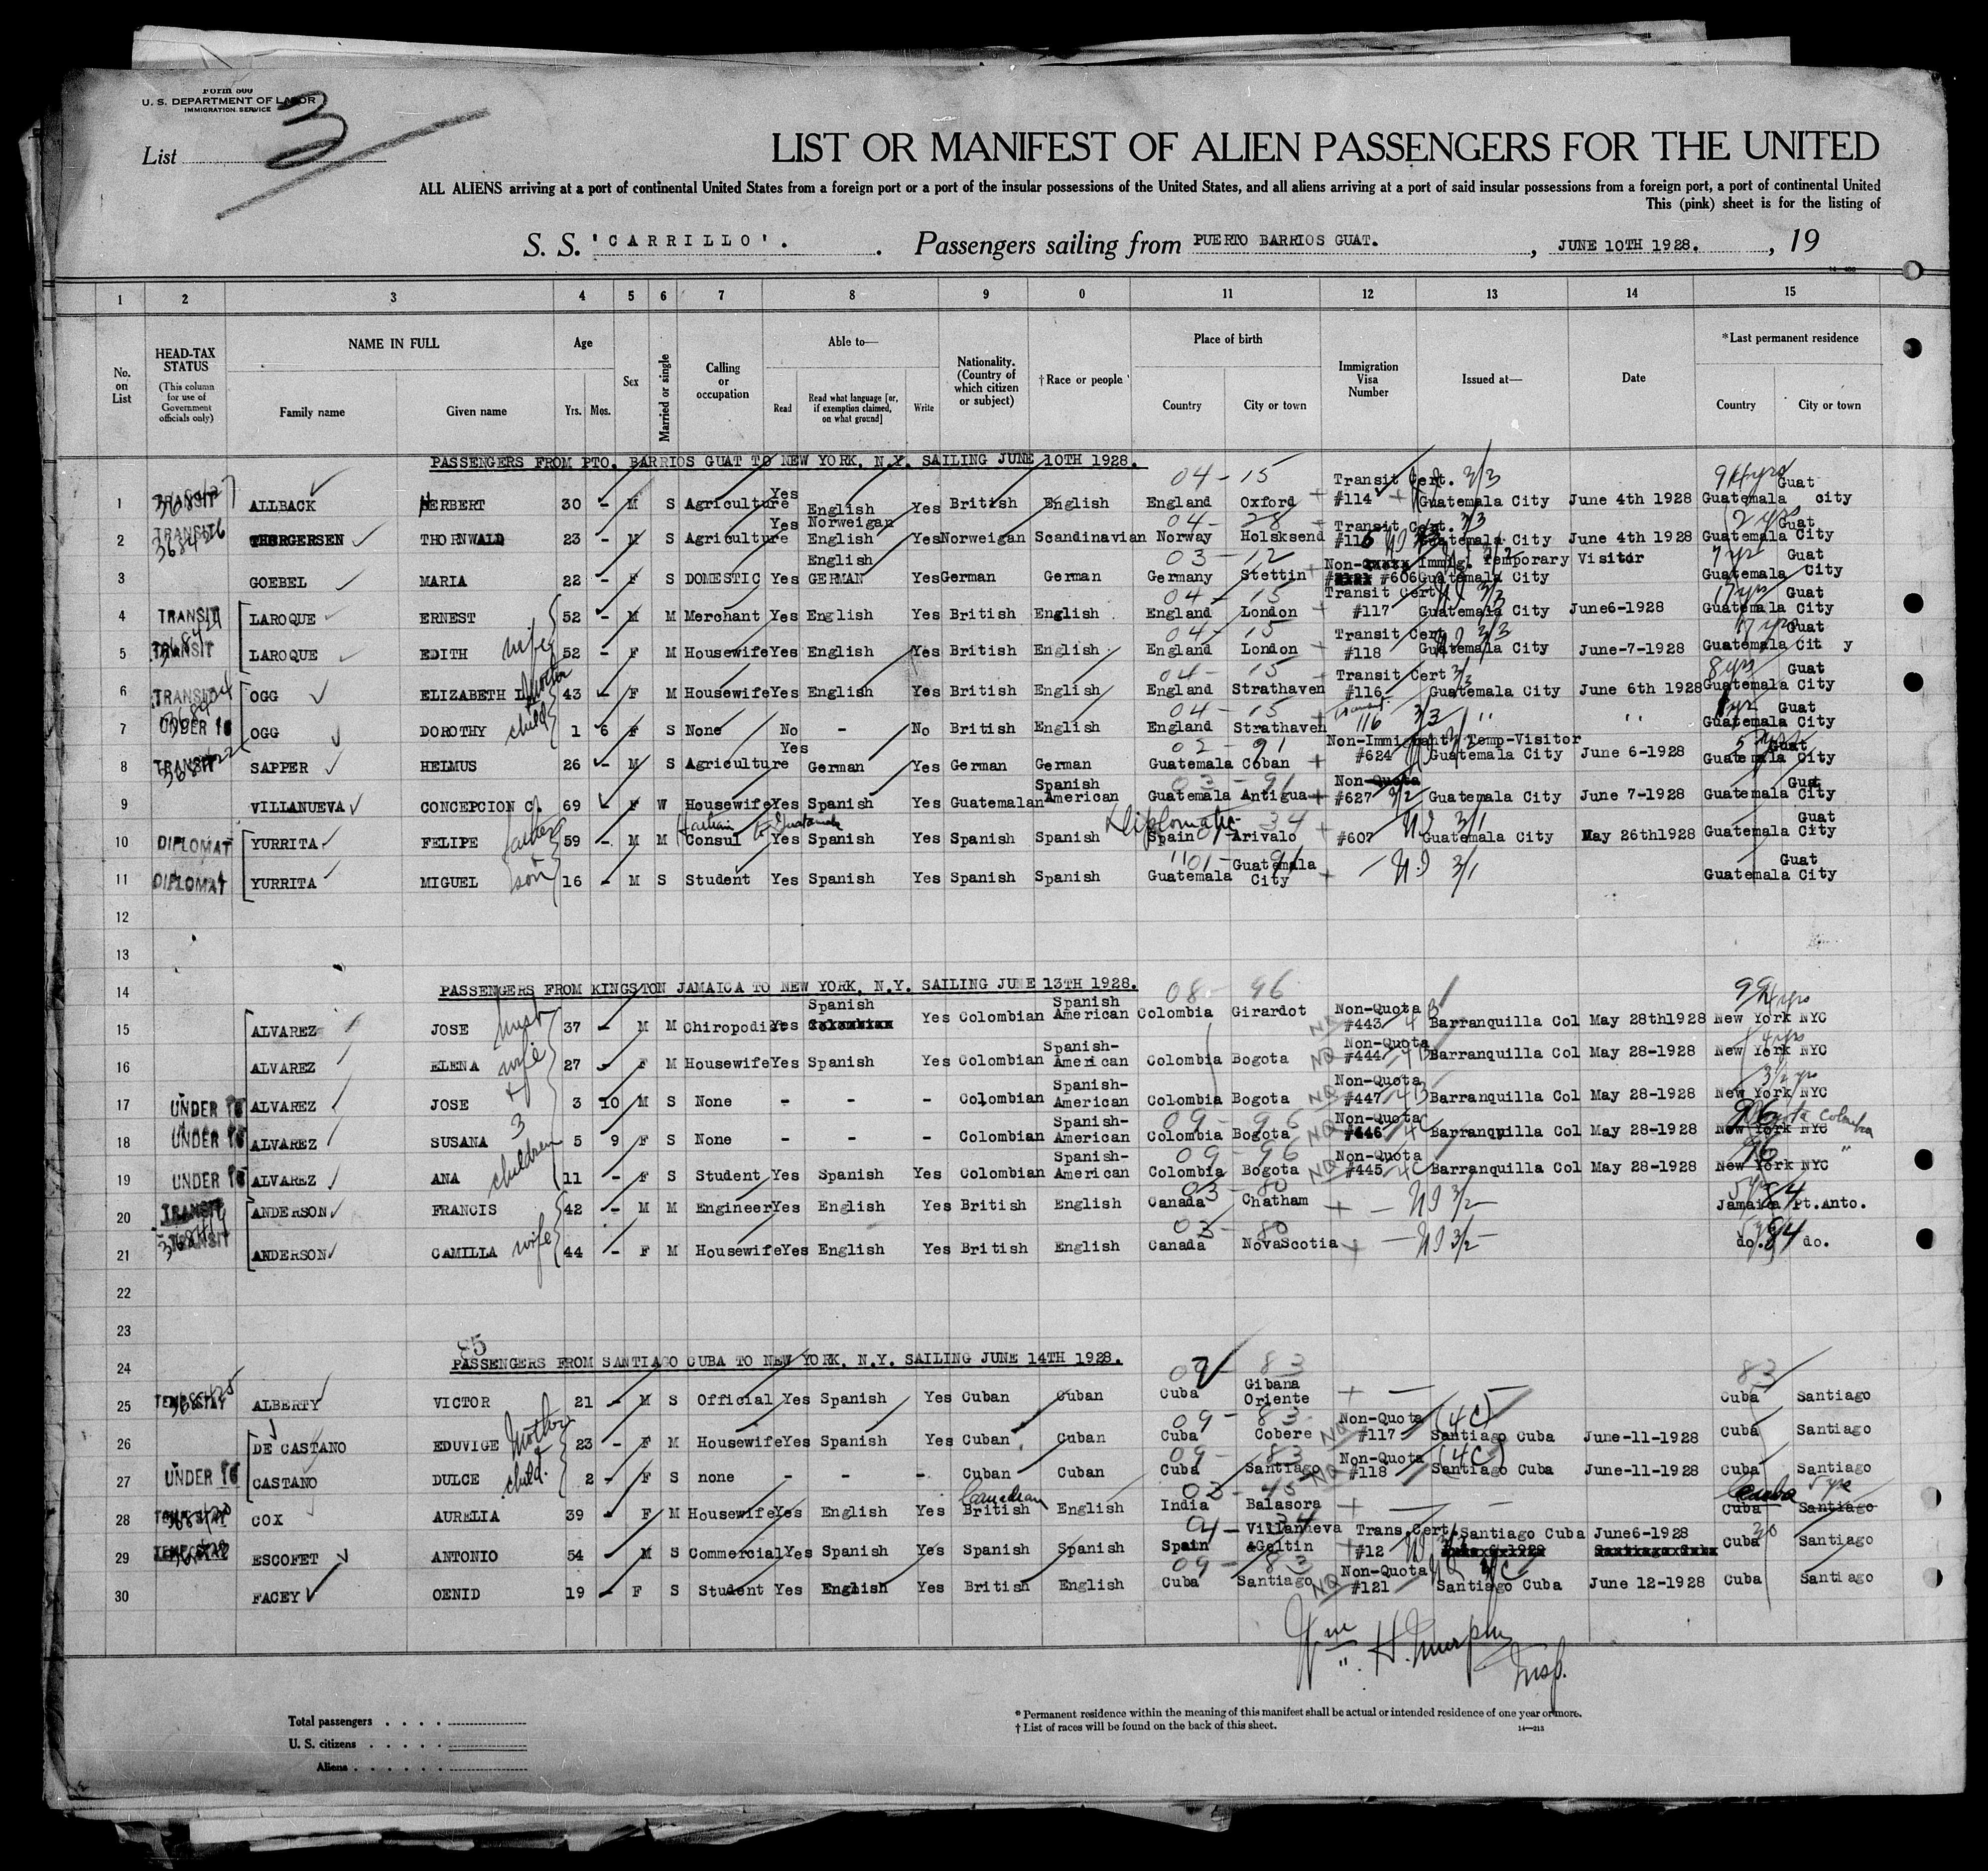 Form 500
U. S. DEPARTMENT OF LABOR
IMMIGRATION SERVICE
List 3
LIST OR MANIFEST OF ALIEN PASSENGERS FOR THE UNITED
ALL ALIENS arriving at a port of continental United States from a foreign port or a port of the insular possessions of the United States, and all aliens arriving at a port of said insular possessions from a foreign port, a port of continental United
This (pink) sheet is for the listing of
S. S. 'CARRILLO'. Passengers sailing from PUERTO BARRIOS GUAT. , JUNE 10TH 1928. , 19
1 2 3 4 5 6 7 8 9 0 11 12 13 14 15
No. on List
HEAD-TAX STATUS
(This column for use of Government officials only)
NAME IN FULL
Family name Given name
Age
Yrs. Mos.
Sex
Married or single
Calling or occupation
Able to—
Read
Read what language [or, if exemption claimed, on what ground]
Write
Nationality. (Country of which citizen or subject)
† Race or people
Place of birth
Country City or town
Immigration Visa Number
Issued at—
Date
* Last permanent residence
Country City or town
PASSENGERS FROM PTO. BARRIOS GUAT TO NEW YORK, N.Y. SAILING JUNE 10TH 1928.
1 TRANSIT ALLBACK HERBERT 30 - M S Agriculture Yes English Yes British English 04-15 England Oxford Transit Cert. #114 Guatemala City June 4th 1928 Guatemala Guat city
2 TRANSIT THORGERSEN THORNWALD 23 - M S Agriculture Yes Norweigan English Yes Norweigan Scandinavian 04-28 Norway Holsksend Transit Cert. Guatemala City June 4th 1928 2 yrs Guatemala Guat City
3 GOEBEL MARIA 22 - F S DOMESTIC Yes English GERMAN Yes German German 03-12 Germany Stettin Non- Immig. Temporary Visitor #606 Guatemala City Guatemala Guat City
4 TRANSIT LAROQUE ERNEST 52 - M M Merchant Yes English Yes British English 04-15 England London Transit Cert #117 Guatemala City June6-1928 17 yrs Guatemala Guat City
5 TRANSIT LAROQUE EDITH wife 52 - F M Housewife Yes English Yes British English 04-15 England London Transit Cert #118 Guatemala City June-7-1928 17 yrs Guatemala Guat Cit y
6 TRANSIT OGG ELIZABETH L. Mother 43 - F M Housewife Yes English Yes British English 04-15 England Strathaven Transit Cert #116 Guatemala City June 6th 1928 8 yrs Guatemala Guat City
7 UNDER 16 OGG DOROTHY child 1 6 F S None No - No British English 04-15 England Strathaven Transit 116 3/3 " " Guatemala Guat City
8 TRANSIT SAPPER HELMUS 26 - M S Agriculture Yes German Yes German German 02-91 Guatemala Coban Non-Immigrant Temp-Visitor #624 Guatemala City June 6-1928 Guatemala Guat City
9 VILLANUEVA CONCEPCION C. 69 - F W Housewife Yes Spanish Yes Guatemalan Spanish American 03-91 Guatemala Antigua Non-Quota #627 3/2 Guatemala City June 7-1928 Guatemala Guat City
10 DIPLOMAT YURRITA FELIPE father 59 - M M Consul to Guatemala Yes Spanish Yes Spanish Spanish Diplomatic 34 Spain Arivalo #607 3/1 Guatemala City May 26th1928 Guatemala Guat City
11 DIPLOMAT YURRITA MIGUEL son 16 - M S Student Yes Spanish Yes Spanish Spanish " 01-91 Guatemala Guatemala City 3/1 Guatemala Guat City
12
13
14 PASSENGERS FROM KINGSTON JAMAICA TO NEW YORK, N.Y. SAILING JUNE 13TH 1928.
15 ALVAREZ JOSE husb 37 - M M Chiropodist Yes Spanish Yes Colombian Spanish American 08-96 Colombia Girardot Non-Quota #443 Barranquilla Col May 28th1928 New York NYC
16 ALVAREZ ELENA wife 27 - F M Housewife Yes Spanish Yes Colombian Spanish-American Colombia Bogota NQ Non-Quota #444 Barranquilla Col May 28-1928 4 yrs New York NYC
17 UNDER 16 ALVAREZ JOSE + 3 10 M S None - - - Colombian Spanish-American Colombia Bogota NQ Non-Quota #447 Barranquilla Col May 28-1928 New York NYC
18 UNDER 16 ALVAREZ SUSANA 3 5 9 F S None - - - Colombian Spanish-American 09-96 Colombia Bogota NQ Non-Quota #446 4C Barranquilla Col May 28-1928 96 Bogota Colombia New York NYC
19 UNDER 16 ALVAREZ ANA children 11 - F S Student Yes Spanish Yes Colombian Spanish-American 09-96 Colombia Bogota NQ Non-Quota #445 4C Barranquilla Col May 28-1928 96 " New York NYC
20 TRANSIT ANDERSON FRANCIS 42 - M M Engineer Yes English Yes British English 03-80 Canada Chatham 3/2 84 Jamaica Pt.Anto.
21 TRANSIT ANDERSON CAMILLA wife 44 - F M Housewife Yes English Yes British English 03-80 Canada NovaScotia 3/2 84 do. do.
22
23
85
24 PASSENGERS FROM SANTIAGO CUBA TO NEW YORK, N.Y. SAILING JUNE 14TH 1928.
25 TEMP.STAY ALBERTY VICTOR 21 - M S Official Yes Spanish Yes Cuban Cuban 09-83 Cuba Gibana Oriente 83 Cuba Santiago
26 DE CASTANO EDUVIGE Mother 23 - F M Housewife Yes Spanish Yes Cuban Cuban 09-83 Cuba Cobere NQ Non-Quota #117 (4C) Santiago Cuba June-11-1928 Cuba Santiago
27 UNDER 16 CASTANO DULCE child. 2 - F S none - - - Cuban Cuban 09-83 Cuba Santiago NQ Non-Quota #118 (4C) Santiago Cuba June-11-1928 Cuba Santiago
28 TEMP.STAY COX AURELIA 39 - F M Housewife Yes English Yes Canadian British English 03-45 India Balasora Cuba 5 yrs Cuba Santiago
29 TEMP.STAY ESCOFET ANTONIO 54 - M S Commercial Yes Spanish Yes Spanish Spanish 04-34 Spain Villanneva &Geltin Trans.Cert. #12 Santiago Cuba June6-1928 Cuba Santiago
30 FACEY OENID 19 - F S Student Yes English Yes British English 09-83 Cuba Santiago NQ Non-Quota #121 Santiago Cuba June 12-1928 Cuba Santiago
Wm. H. Murphy
Insp.
Total passengers . . . .
U. S. citizens . . . . .
Aliens . . . . . .
* Permanent residence within the meaning of this manifest shall be actual or intended residence of one year or more.
† List of races will be found on the back of this sheet.
14—213